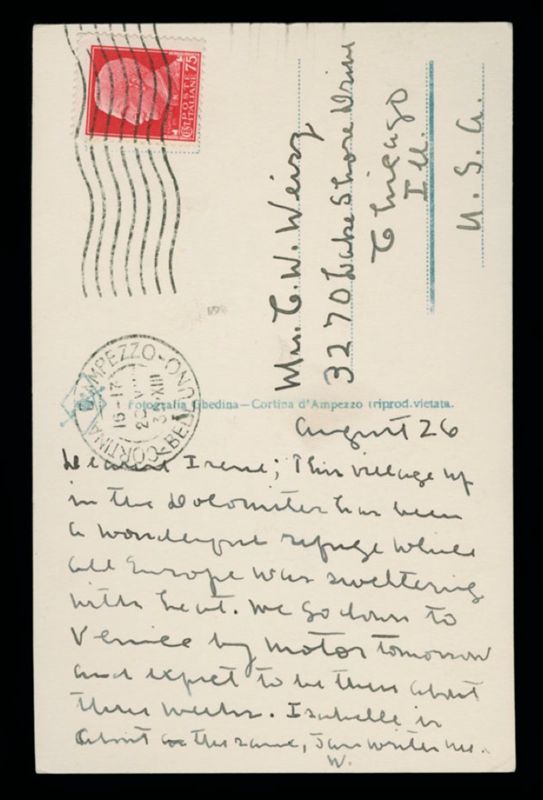 POSTE ITALIANE
CENT. 75
Mrs. C. W. Weisz
3270 Lake Shore Drive
Chicago
Ill.
U. S. A.
CORTINA D'AMPEZZO-BELLUNO
16-17
XIII
Fotografia Ghedina—Cortina d'Ampezzo riprod. vietata.
August 26
Dearest Irene; This village up
in the Dolomites has been
a wonderful refuge while
all Europe was sweltering
with heat. We go down to
Venice by motor tomorrow
and expect to be there about
three weeks. Isabelle is
about the same, Jan writes me.
W.